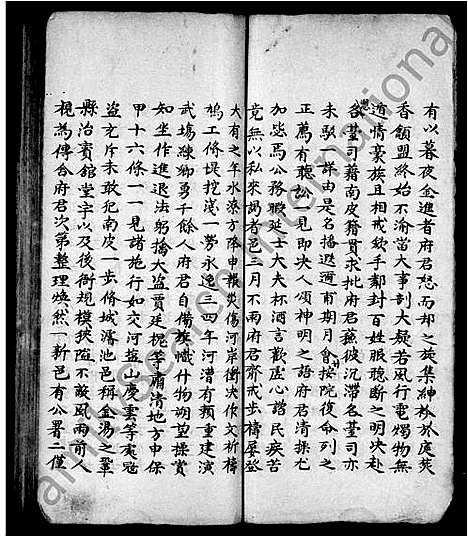 有以暮夜金進者府君怒而却之旋集神於庭焚
香額盟終始不渝當大事剖大疑若風行電燭物無
遁情豪族且相戒斂手鄰封百姓服聽斷之明決赴
愬臺司藉南皮籍貫求批府君蔽彼沉滯各臺司亦
未駁詳由是名播遐邇甫期月會按院復命列之
正薦有聽訟一見即決人頌神明之語府君清操尤
加毖焉公務暇延士大夫杯酒言歡虛心諮民疾苦
竟無以私來謁者邑三月不雨府君齋戒步禱屢登
大有之年水潦方降申報災傷河岸衝決作文祈禱
鳩工脩堤挖淺一勞永逸三四年河漕有賴重建演
武場練鄉勇千餘人府君自備旗幟什物朔望操賞
知坐作進退法躬擒大盜賈廷槐等肅清地方申保
甲十六條一一見諸施行如交河鹽山慶雲等處寇
盜充斥未敢犯南皮一步脩城濬池邑稱金湯之鞏
縣治賓館堂宇以及後衙規模挾隘不敵風雨前人
視為傳合府君次第整理煥然一新邑有公署二僅
amilysearch international